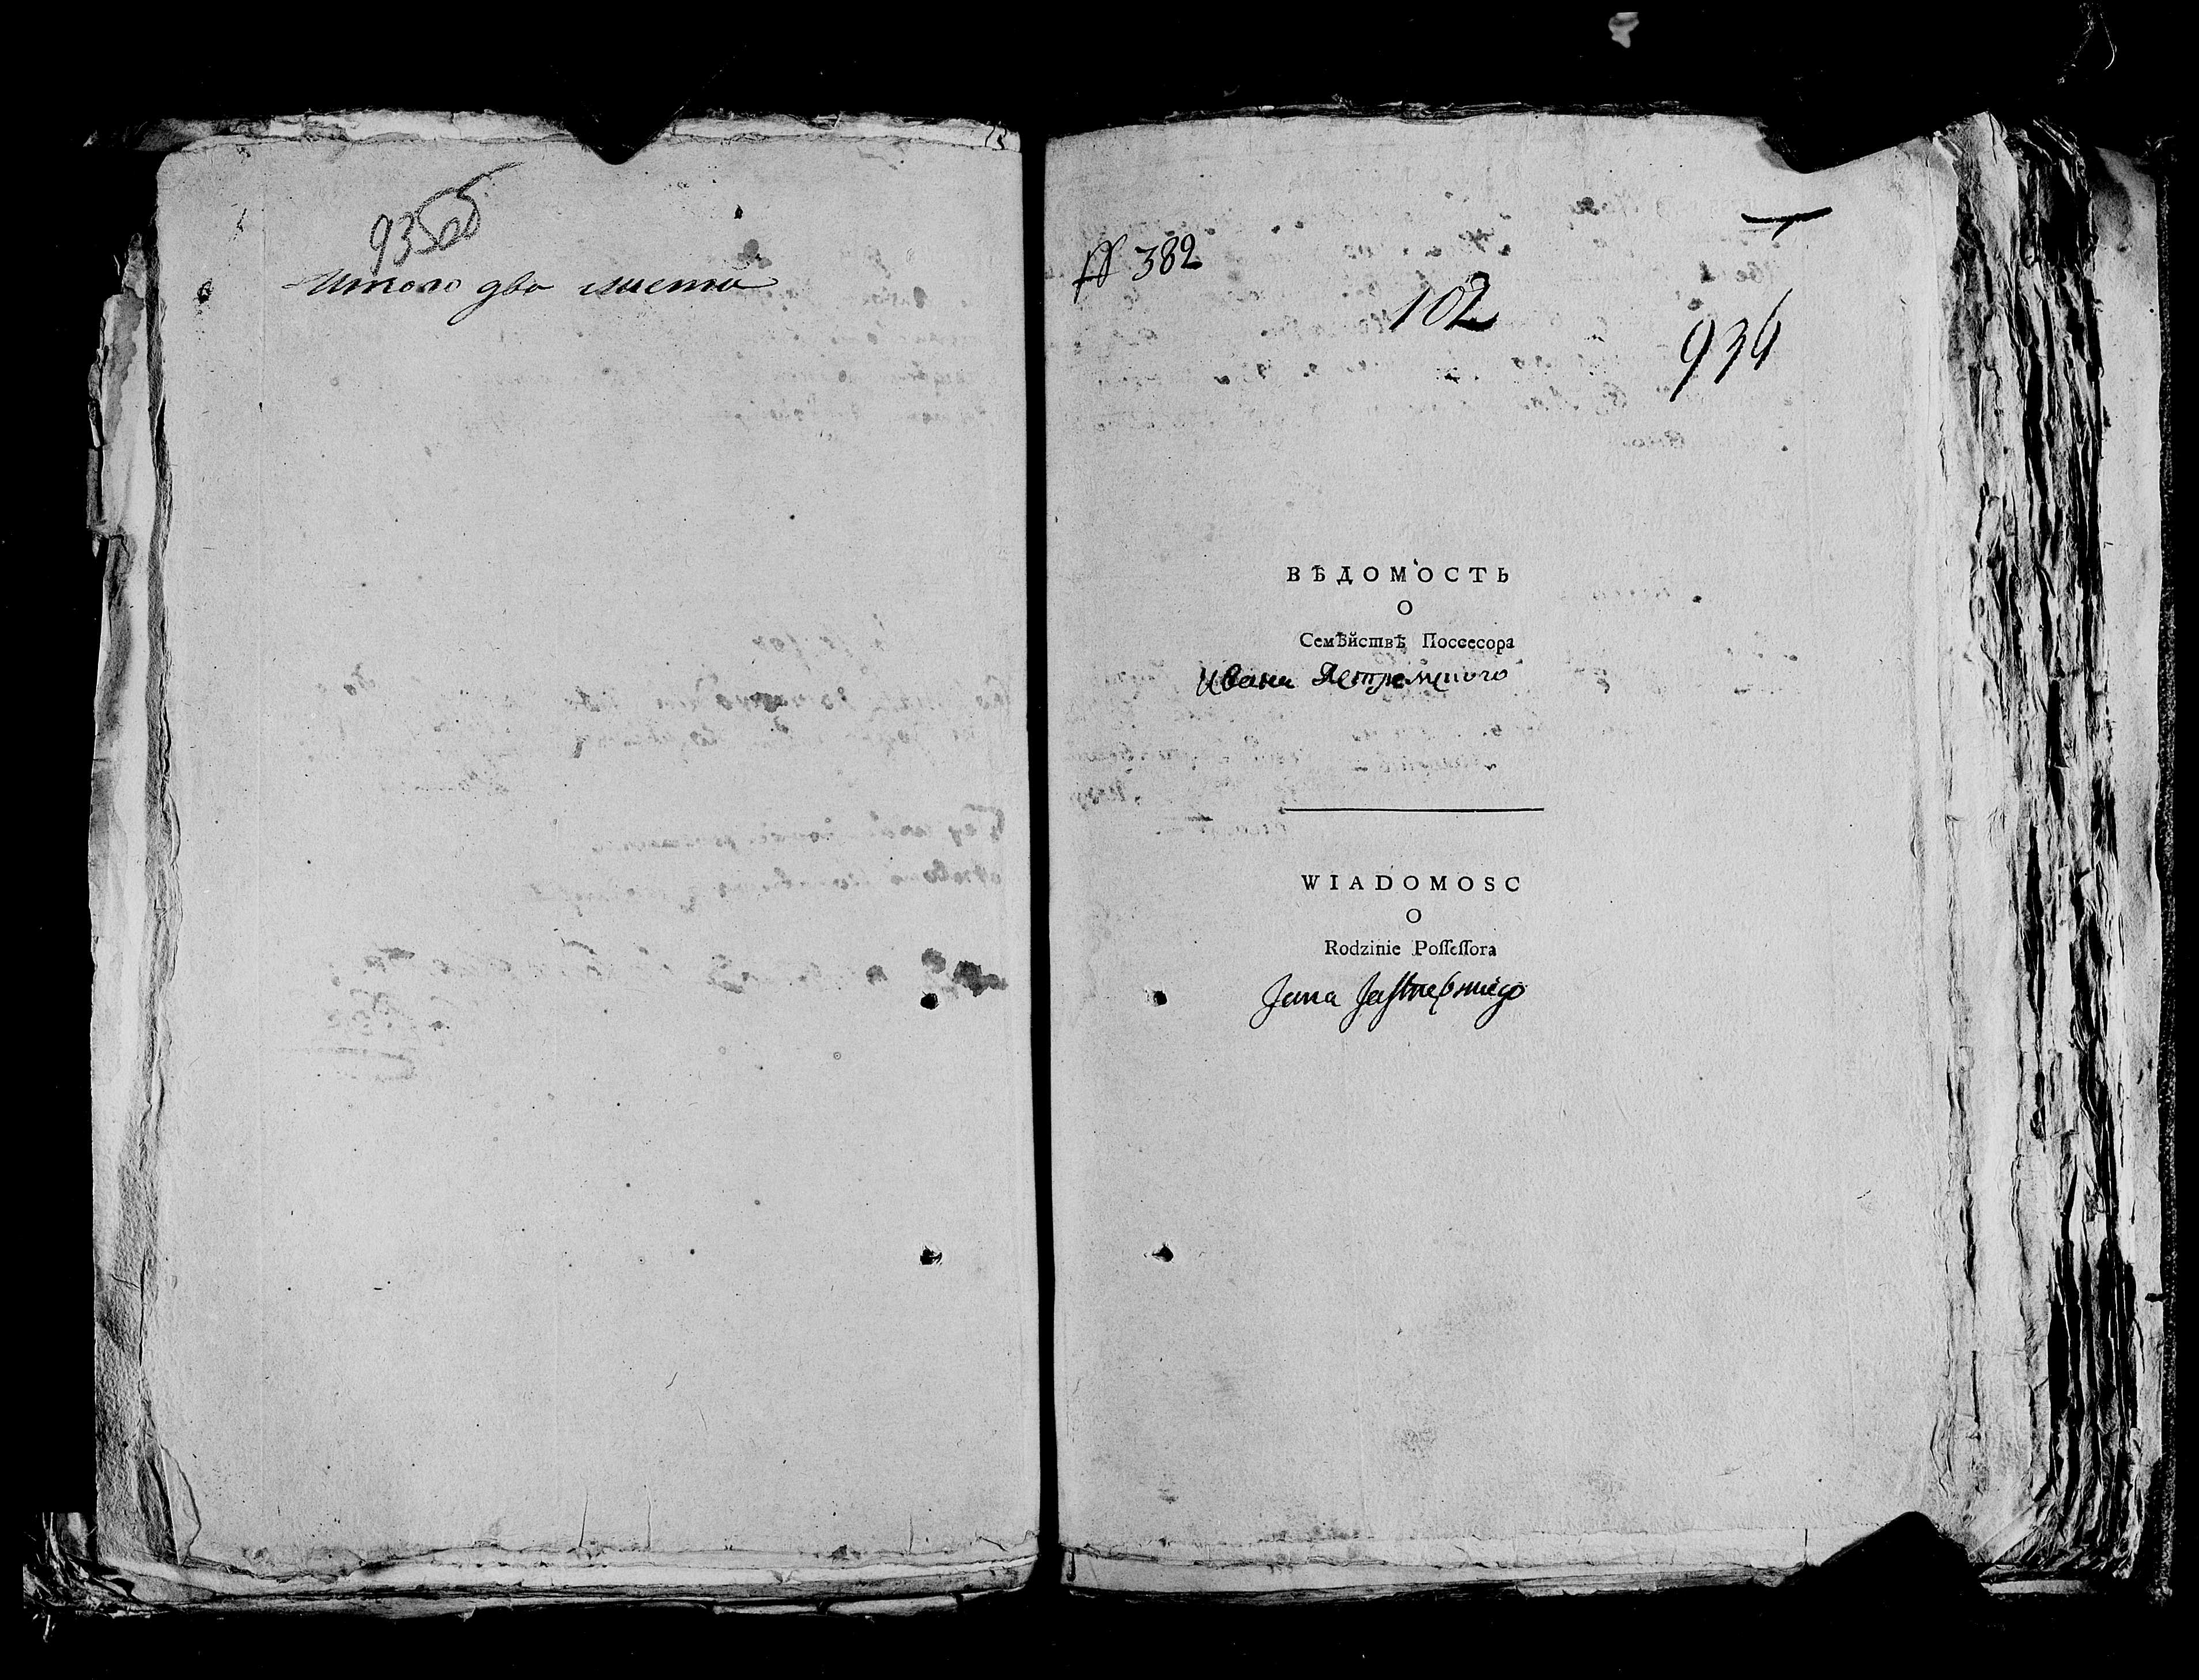 935об
Итого два листа
№ 382
102
936
ВѢДОМОСТЬ
О
Семѣйствѣ Поссесора
Ивана
WIADOMOSC
O
Rodzinie Poſſeſſora
Jana